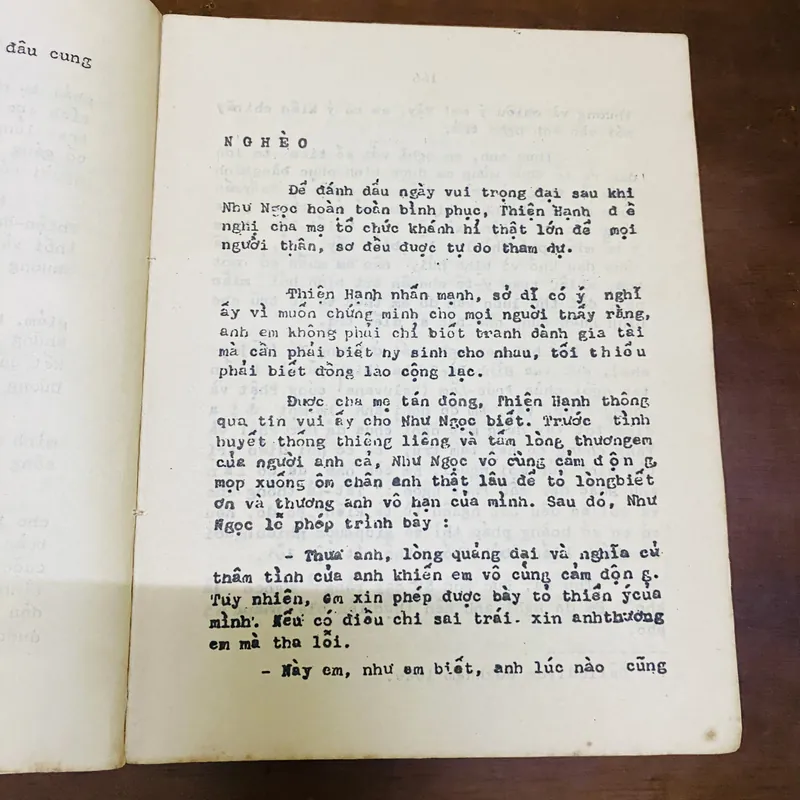 đâu cung
NGHÈO
Để đánh dấu ngày vui trọng đại sau khi
Như Ngọc hoàn toàn bình phục, Thiện Hạnh đề
nghị cha mẹ tổ chức khánh hỉ thật lớn để mọi
người thân, sơ đều được tự do tham dự.
Thiện Hạnh nhấn mạnh, sở dĩ có ý nghĩ
ấy vì muốn chứng minh cho mọi người thấy rằng,
anh em không phải chỉ biết tranh dành gia tài
mà cần phải biết hy sinh cho nhau, tối thiểu
phải biết đồng lao cộng lạc.
Được cha mẹ tán đồng, Thiện Hạnh thông
qua tin vui ấy cho Như Ngọc biết. Trước tình
huyết thống thiêng liêng và tấm lòng thươngem
của người anh cả, Như Ngọc vô cùng cảm động,
mọp xuống ôm chân anh thật lâu để tỏ lòngbiết
ơn và thương anh vô hạn của mình. Sau đó, Như
Ngọc lễ phép trình bày :
- Thưa anh, lòng quảng đại và nghĩa cử
thâm tình của anh khiến em vô cùng cảm động.
Tuy nhiên, em xin phép được bày tỏ thiển ýcủa
mình. Nếu có điều chi sai trái. xin anhthương
em mà tha lỗi.
- Này em, như em biết, anh lúc nào cũng